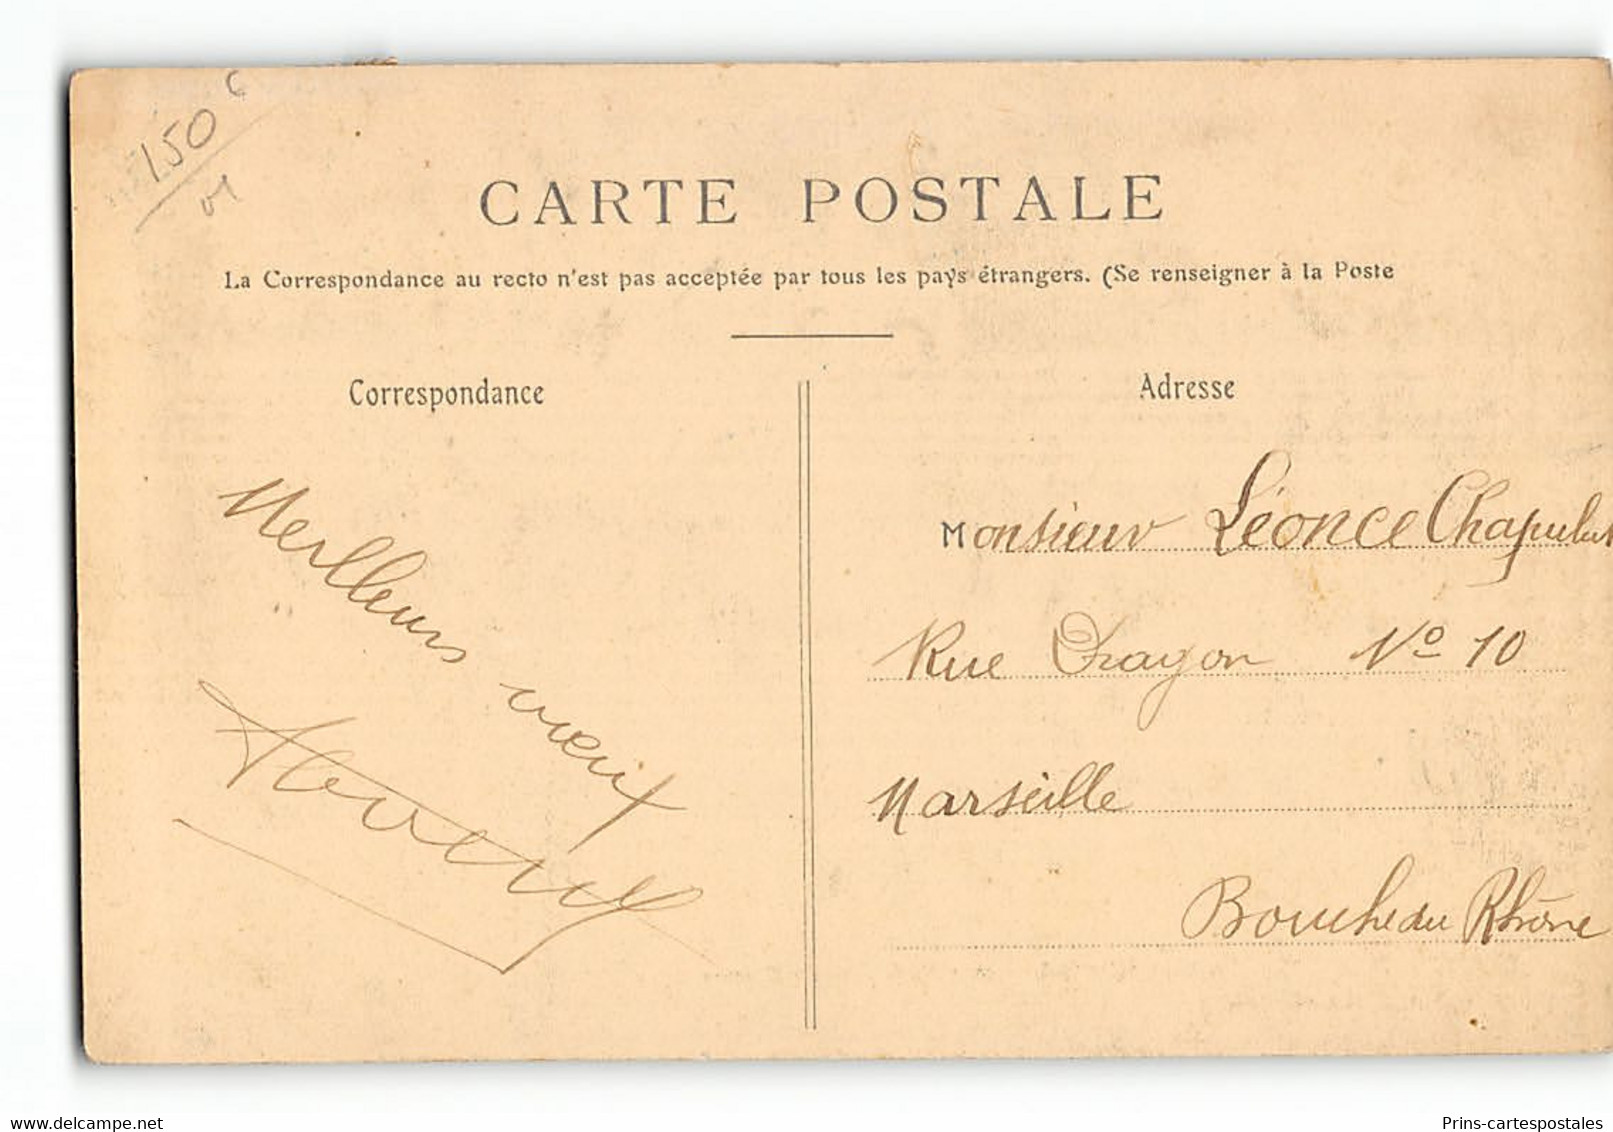 150
CARTE POSTALE
La Correspondance au recto n'est pas acceptée par tous les pays étrangers. (Se renseigner à la Poste
Correspondance
Adresse
Meilleurs vœux
Monsieur Léonce
Rue Dragon Nº 10
Marseille
Bouche du Rhône
delcampe.net
Prins-cartespostales